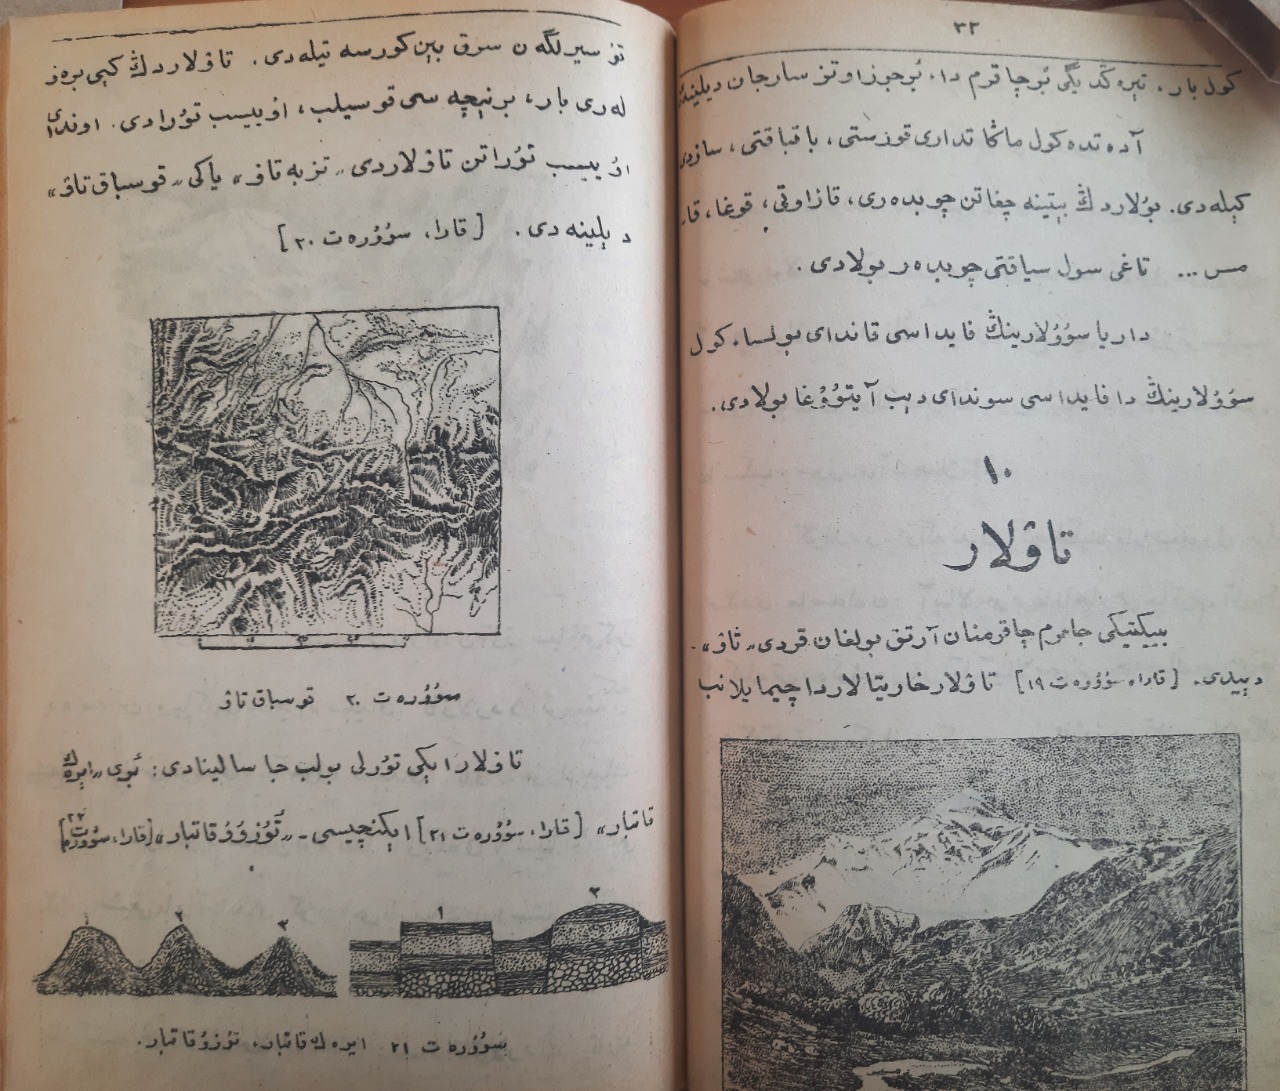 ٣٢
كول بار، تېرە ڭدىگى ئوچا قرم دا، ئوجوز اوتز سارجان دېلىنە
آدە تدە كول ماڭا تدارى قوزستى، باقباقتى، سازدى
كېلە دى. بۇلاردىڭ بېتىنە چغاتن چوبدەرى، قازاوتى، قوغا، قا
مىس ... تاغى سول سياقتى چوبدە ر بولادى.
داريا سۇۇلارىنىڭ فايداسى قانداي بولسا، كول
سۇۇلارىنىڭ دا فايداسى سونداي دېب آيتۇۇغا بولادى.
١٠
تاۋلار
بىيىكتىكى جارم چاقرمنان آرتق بولغان قردى „تاۋ“
دېيدى. [قارا، سۇۇرە ت ١٩] تاۋلار خاريتالاردا چيمايلانب
تۇسىرلگە ن سرق بېن كورسە تيلە دى. تاۋلاردىڭ كېى بىرەۋ
لە رى بار، بر نېچە سى قوسيلب، اۇيىسب تۇرادى. اونداي
اۇيىسب تۇراتن تاۋلاردى „تزبە تاۋ“ ياكى „قوسباق تاۋ“
دېلينە دى. [قارا، سۇۇرە ت ٢٠]
سۇۇرە ت ٢٠ قوسباق تاۋ
تاۋلار اېكى تۇرلى بولب جاسالينادى: ئبرى „ايرەك
قاتبار“ [قارا، سۇۇرە ت ٢١] ايكنچيسى - „تۇزۇۇ قاتبار“ [قارا، سۇۇرە ت ٢٢]
١ ٢ ٣ ١ ٢
سۇۇرە ت ٢١ ايرە ك قاتبار، تۇزۇ قاتبار.